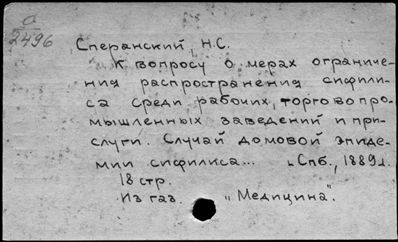 а
2496
Сперанский, Н.С.
К вопросу о мерах ограниче-
ния распространения сифили-
са среди рабочих, торговопро-
мышленных заведений и при-
слуги. Случай домовой эпиде-
мии сифилиса... Спб., 1889г.
18 стр.
Из газ. "Медицина".